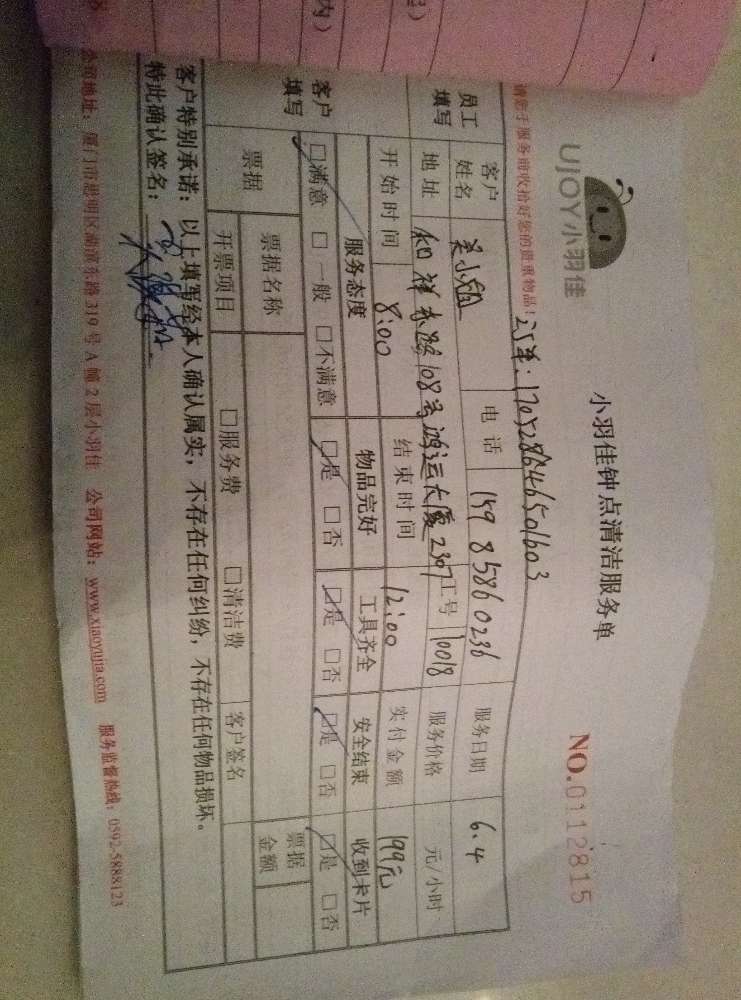 内）
UJOY小羽佳
小羽佳钟点清洁服务单
NO.0112815
请您于服务前收拾好您的贵重物品！
订单：170528646501603
员工填写
客户姓名 吴小姐 电话 159 8586 0236 服务日期 6.4
地址 和祥东路108号鸿运大厦2307 工号 10018 服务价格 元/小时
开始时间 8:00 结束时间 12:00 实付金额 199元
客户填写
服务态度 物品完好 工具齐全 安全结束 收到卡片
□满意 □一般 □不满意 □是 □否 □是 □否 □是 □否 □是 □否
票据 票据名称 票据金额
开票项目 □服务费 □清洁费 客户签名
客户特别承诺：以上填写经本人确认属实，不存在任何纠纷，不存在任何物品损坏。
特此确认签名：
公司地址：厦门市思明区湖滨东路319号A幢2层小羽佳 公司网站：www.xiaoyujia.com 服务监督热线：0592-5888123